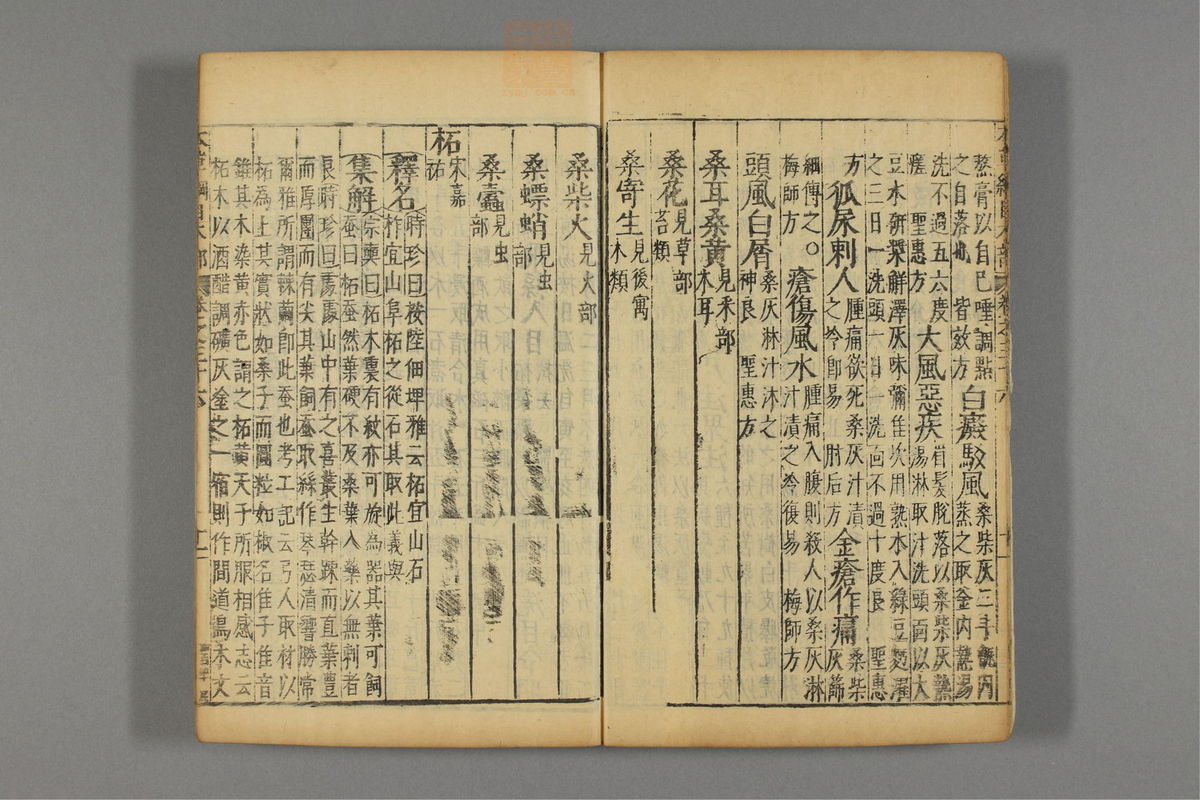 蒸膏以自己唾調點
之自落也 皆效方 白癜駁風 桑柴灰二斗甑內
蒸之取釜內熱湯
洗不過五六度 大風惡疾 眉髮脫落以桑柴灰熱
湯淋取汁洗頭面以大
豆水研漿解澤灰味彌佳次用熟水入綠豆麪濯
之三日一洗頭一日一洗面不過十度良 聖惠
方 狐尿刺人 腫痛欲死桑灰汁漬
之冷即易 肘后方 金瘡作痛 桑柴
灰篩
傅之 瘡傷風水 腫痛入腹則殺人以桑灰淋
汁漬之冷復易 梅師方
梅師方
頭風白屑 桑灰淋汁沐之
神良 聖惠方
桑耳桑黃 見菜部
木耳
桑花 見草部
苔類
桑寄生 見後寓
木類
桑柴火 見火部
桑螵蛸 見虫
部
桑蠹 見虫
部
柘 宋嘉
祐
釋名 時珍曰按陸佃埤雅云柘宜山石
柞宜山阜柘之從石其取此義與
集解 宗奭曰柘木裏有紋亦可旋為器其葉可飼
蚕曰柘蚕然葉硬不及桑葉入藥以無刺者
良時珍曰處處山中有之喜叢生幹疎而直葉豐
而厚團而有尖其葉飼蚕取絲作琴瑟清響勝常
爾雅所謂棘繭即此蚕也考工記云弓人取材以
柘為上其實狀如桑子而圓粒如椒名隹子隹音
錐其木染黃赤色謂之柘黃天子所服相感志云
柘木以酒醋調礦灰塗之一宿則作間道烏木文